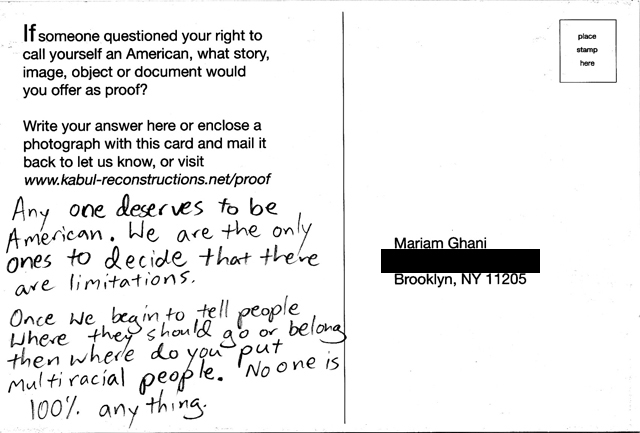 If someone questioned your right to
call yourself an American, what story,
image, object or document would
you offer as proof?
Write your answer here or enclose a
photograph with this card and mail it
back to let us know, or visit
www.kabul-reconstructions.net/proof
Any one deserves to be
American. We are the only
ones to decide that there
are limitations.
Once we begin to tell people
where they should go or belong
then where do you put
multiracial people. No one is
100% anything.
place
stamp
here
Mariam Ghani
Brooklyn, NY 11205